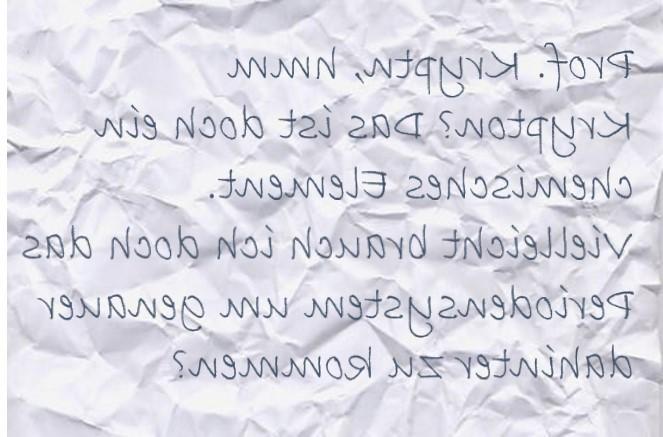 Prof. Kryptn, hmm
Krypton? Das ist doch ein
chemisches Element.
Vielleicht brauch ich doch das
Periodensystem um genauer
dahinter zu kommen?